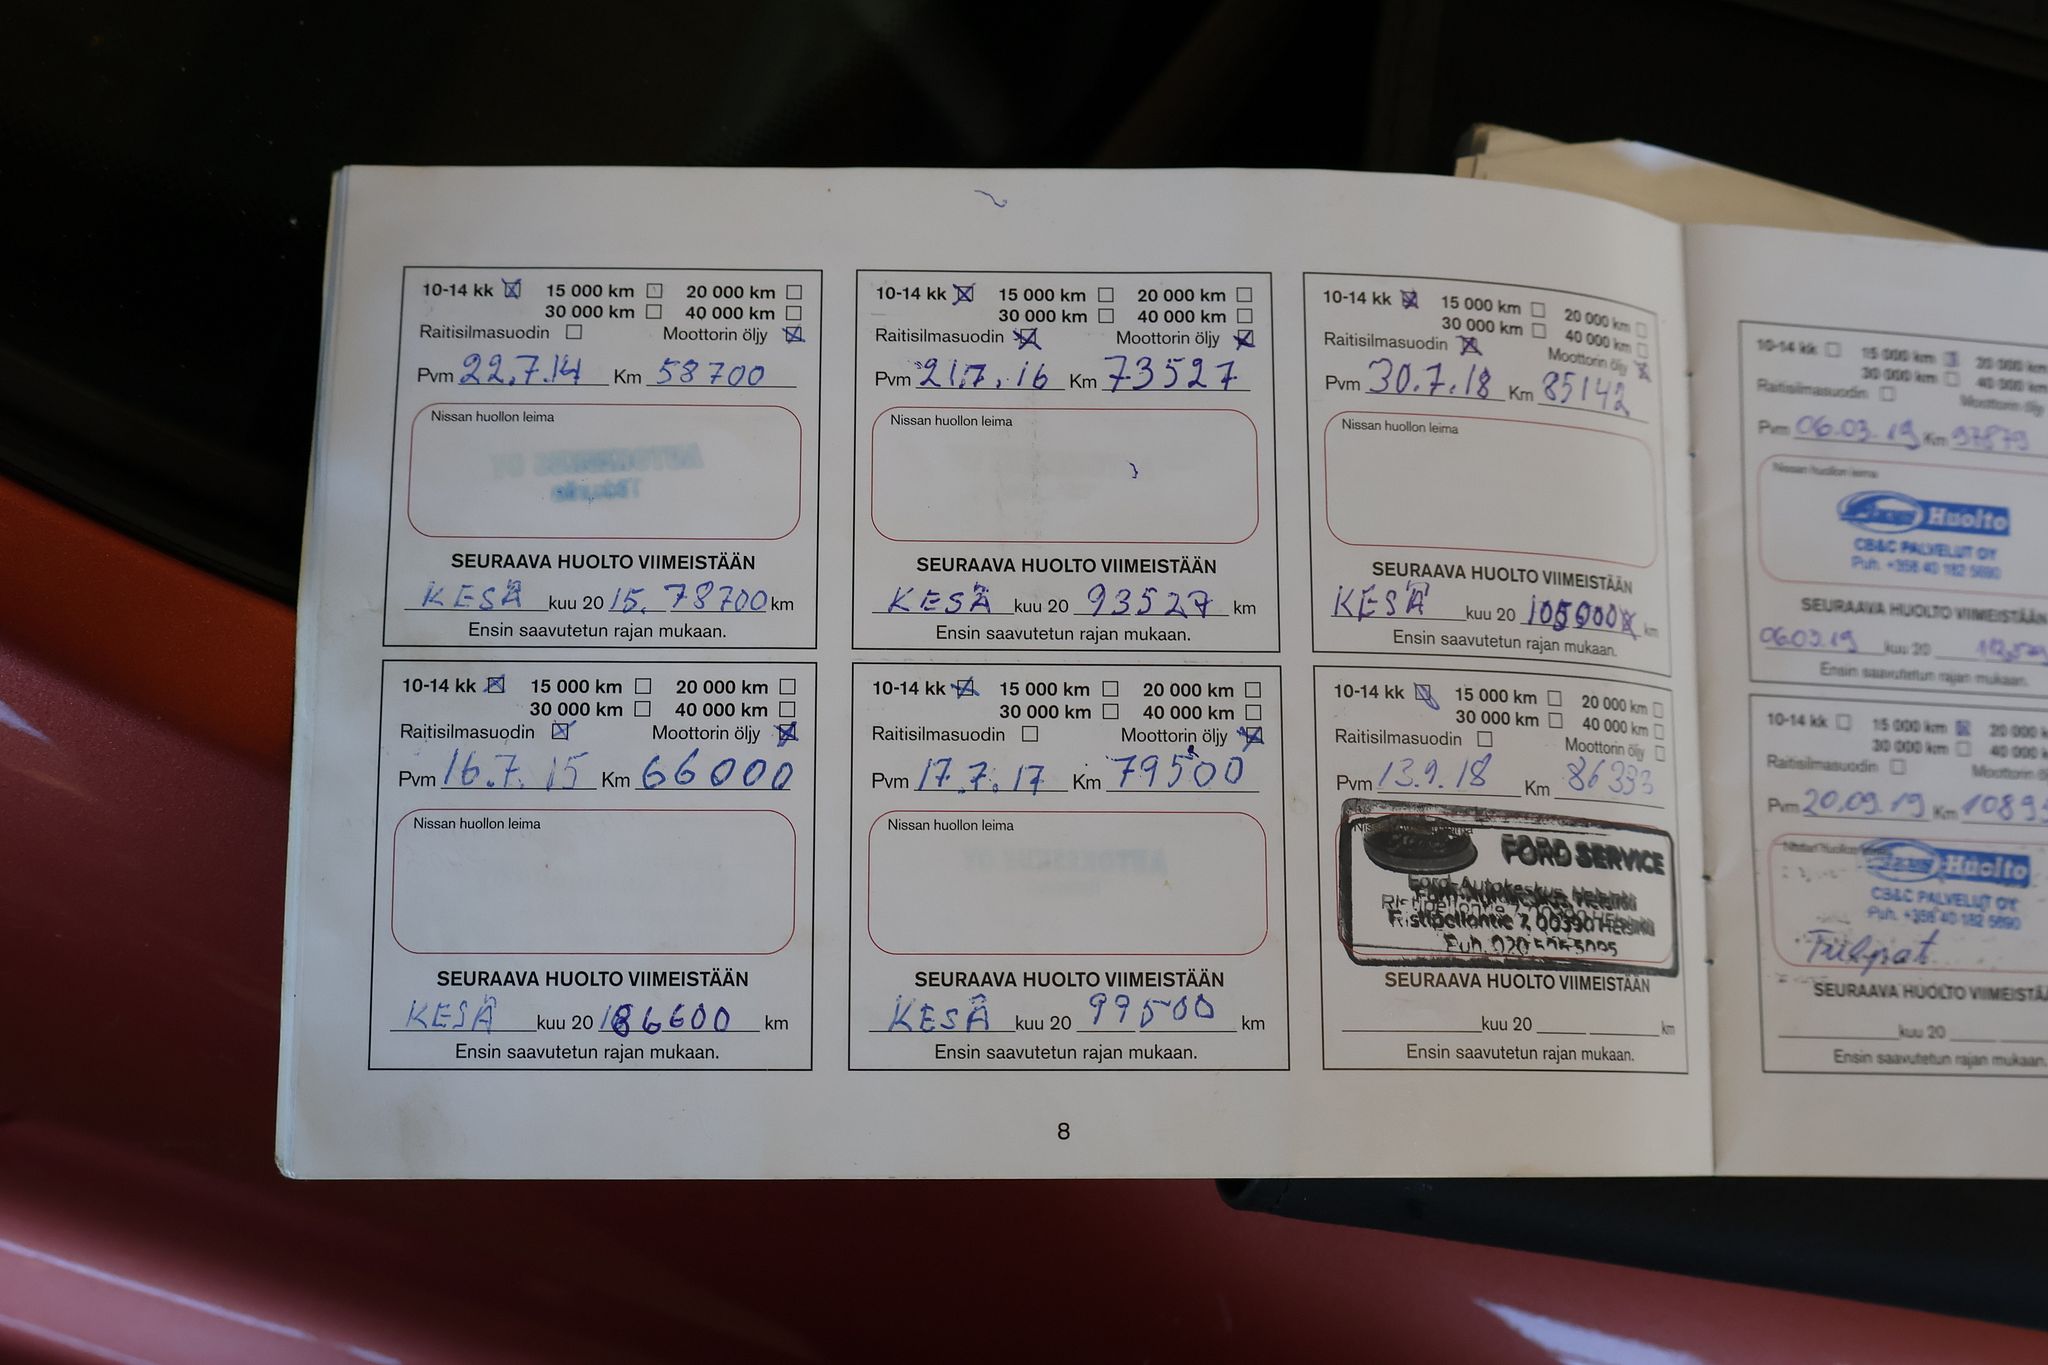 10-14 kk 15 000 km 20 000 km
30 000 km 40 000 km
Raitisilmasuodin Moottorin öljy
Pvm 22.7.14 Km 58700
Nissan huollon leima
SEURAAVA HUOLTO VIIMEISTÄÄN
KESÄ kuu 20 15. 78700 km
Ensin saavutetun rajan mukaan.
10-14 kk 15 000 km 20 000 km
30 000 km 40 000 km
Raitisilmasuodin Moottorin öljy
Pvm 16.7.15 Km 66000
Nissan huollon leima
SEURAAVA HUOLTO VIIMEISTÄÄN
KESÄ kuu 20 km
Ensin saavutetun rajan mukaan.
10-14 kk 15 000 km 20 000 km
30 000 km 40 000 km
Raitisilmasuodin Moottorin öljy
Pvm 21.7.16 Km 73527
Nissan huollon leima
SEURAAVA HUOLTO VIIMEISTÄÄN
KESÄ kuu 20 93527 km
Ensin saavutetun rajan mukaan.
10-14 kk 15 000 km 20 000 km
30 000 km 40 000 km
Raitisilmasuodin Moottorin öljy
Pvm 17.7.17 Km 79500
Nissan huollon leima
SEURAAVA HUOLTO VIIMEISTÄÄN
KESÄ kuu 20 99500 km
Ensin saavutetun rajan mukaan.
10-14 kk 15 000 km 20 000 km
30 000 km 40 000 km
Raitisilmasuodin Moottorin öljy
Pvm 30.7.18 Km 85142
Nissan huollon leima
SEURAAVA HUOLTO VIIMEISTÄÄN
KESÄ kuu 20 km
Ensin saavutetun rajan mukaan.
10-14 kk 15 000 km 20 000 km
30 000 km 40 000 km
Raitisilmasuodin Moottorin öljy
Pvm 13.9.18 Km 86333
FORD SERVICE
Ford-Autokeskus, Helsinki
Ristipellontie 7, 00390 Helsinki
Puh. 020
SEURAAVA HUOLTO VIIMEISTÄÄN
kuu 20 km
Ensin saavutetun rajan mukaan.
8
10-14 kk 15 000 km 20 000 km
30 000 km 40 000 km
Raitisilmasuodin Moottorin öljy
Pvm 06.03.19 Km 97879
Nissan huollon leima
Huolto
CB&C PALVELUT OY
Puh. +358 40 182 5690
SEURAAVA HUOLTO VIIMEISTÄÄN
06.03.19 kuu 20
Ensin saavutetun rajan mukaan.
10-14 kk 15 000 km 20 000
30 000 km 40 000
Raitisilmasuodin Moottorin
Pvm 20.09.19 Km 10895
Nissan huollon leima
Huolto
CB&C PALVELUT OY
Puh. +358 40 182 5690
SEURAAVA HUOLTO VIIMEISTÄÄ
kuu 20
Ensin saavutetun rajan mukaan.